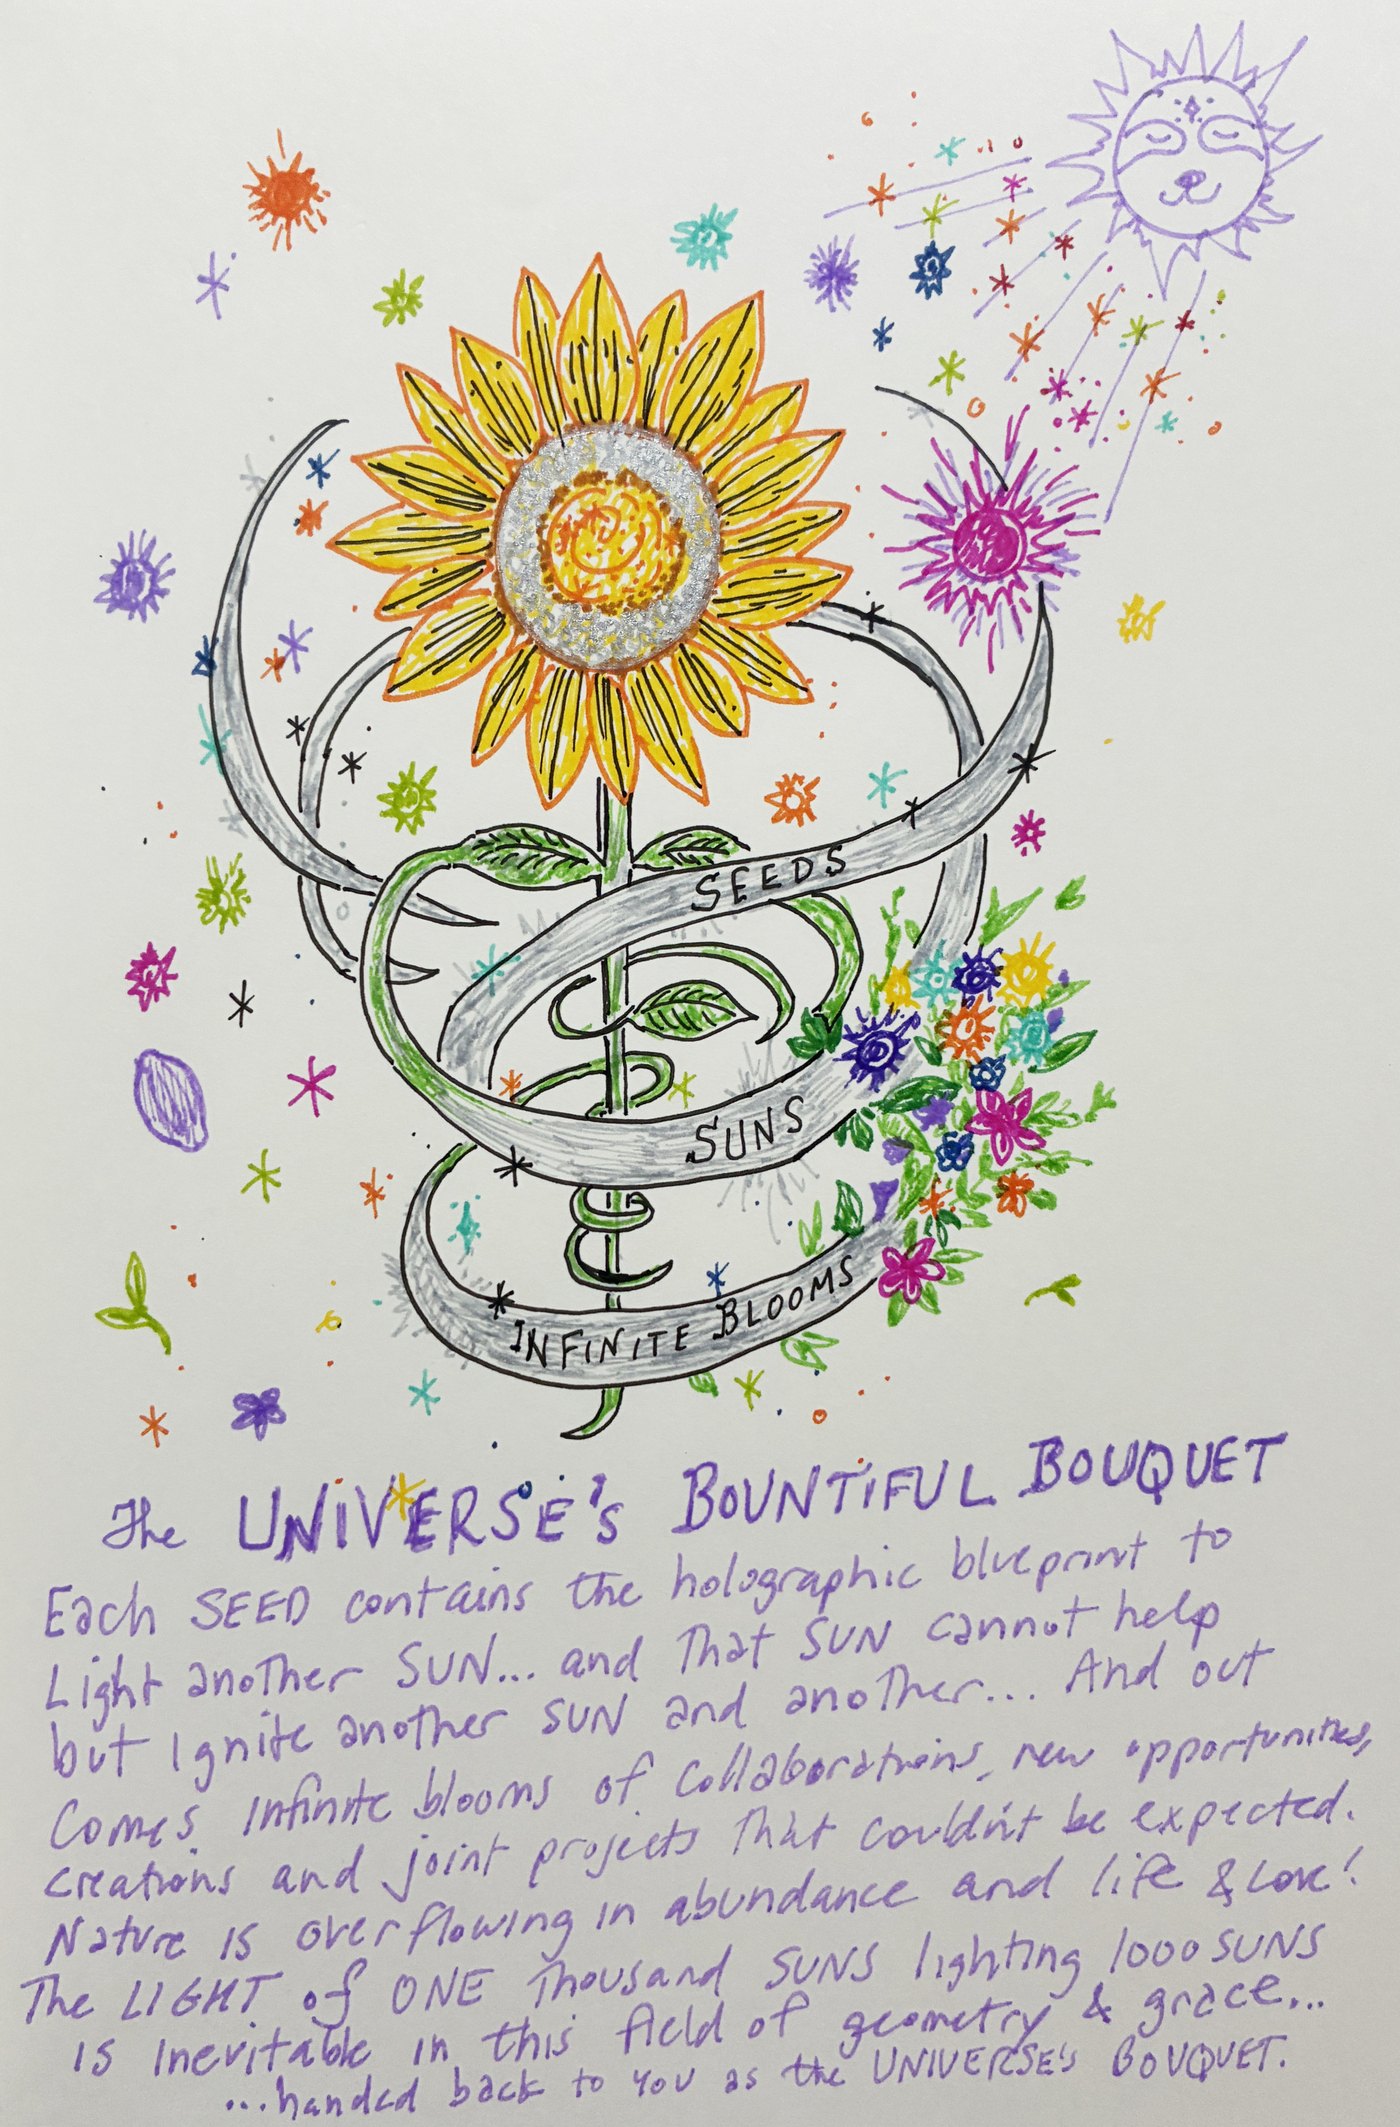 SEEDS
SUNS
INFINITE BLOOMS
The UNIVERSE's BOUNTIFUL BOUQUET
Each SEED contains the holographic blueprint to
Light another SUN... and That SUN cannot help
but Ignite another SUN and another... And out
Comes Infinite blooms of collaborations, new opportunities,
creations and joint projects that couldn't be expected.
Nature is overflowing in abundance and life & Love!
The LIGHT of ONE Thousand SUNS lighting 1000 SUNS
is inevitable in this field of geometry & grace...
...handed back to YOU as the UNIVERSE's BOUQUET.